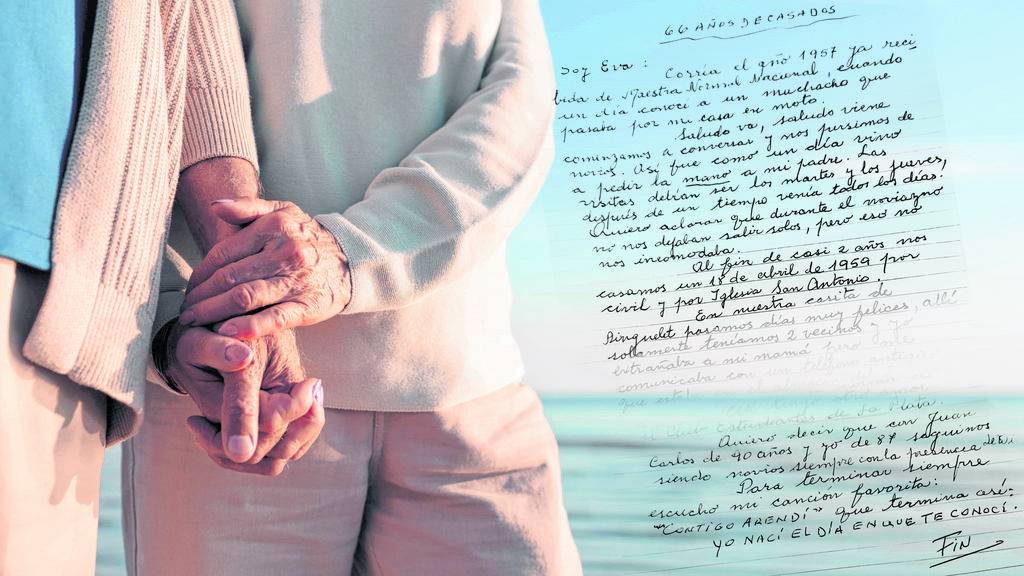 66 AÑOS DE CASADOS
Soy Eva: Corría el año 1957 ya reci
bida de Maestra Normal Nacional, cuando
un día conocí a un muchacho que
pasaba por mi casa en moto.
Saludo va, saludo viene
comenzamos a conversar y nos pusimos de
novios. Así fue como un día vino
a pedir la mano a mi padre. Las
visitas debían ser los martes y los jueves,
después de un tiempo venía todos los días!
Quiero aclarar que durante el noviazgo
no nos dejaban salir solos, pero eso no
nos incomodaba.
Al fin de casi 2 años nos
casamos un 18 de abril de 1959 por
civil y por Iglesia San Antonio!
En nuestra casita de
Ringuelet pasamos días muy felices, allí
solamente teníamos 2 vecinos y yo
extrañaba a mi mamá pero me
comunicaba con un teléfono
que
el Club Estudiantes de La Plata.
Quiero decir que con Juan
Carlos de 90 años y yo de 87 seguimos
siendo novios siempre con la presencia de
Para terminar siempre
escucho mi canción favorita:
"CONTIGO APRENDÍ" que termina así:
YO NACÍ EL DÍA EN QUE TE CONOCÍ.
FIN